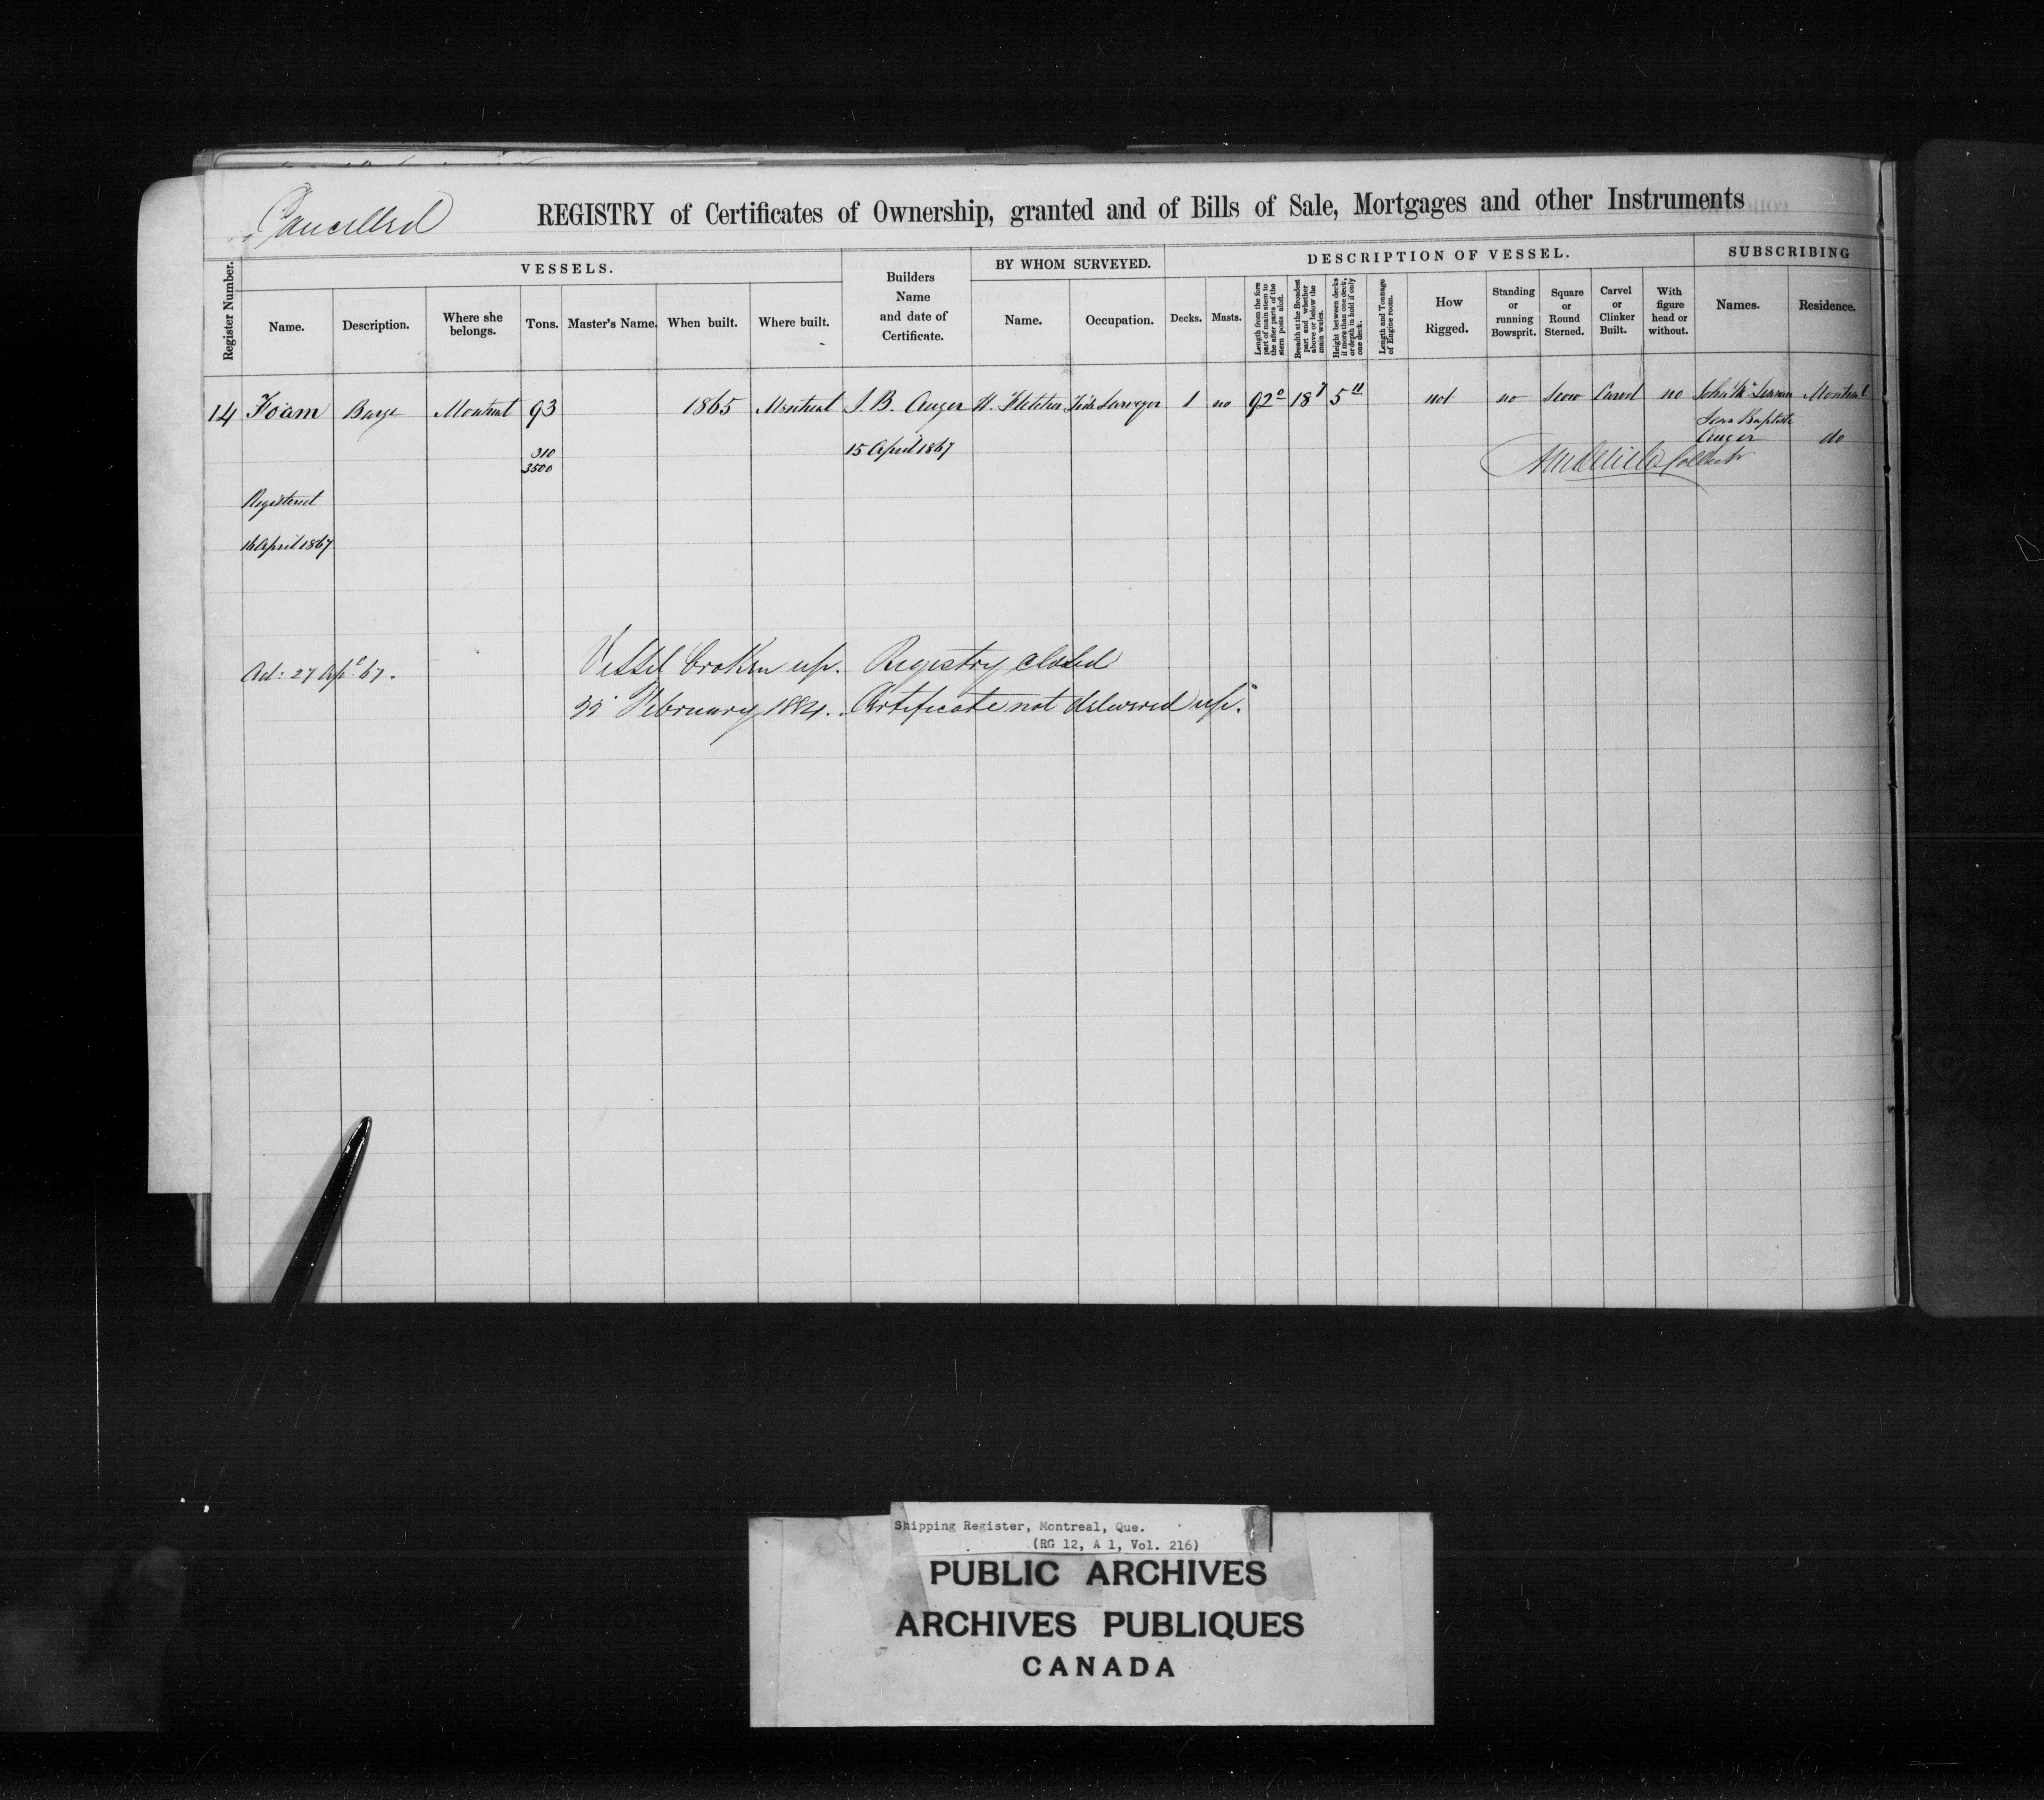 Cancelled
REGISTRY of Certificates of Ownership, granted and of Bills of Sale, Mortgages and other Instruments
Register Number.
VESSELS.
Name.
Description.
Where she belongs.
Tons.
Master's Name.
When built.
Where built.
Builders
Name
and date of
Certificate.
BY WHOM SURVEYED.
Name.
Occupation.
DESCRIPTION OF VESSEL.
Decks.
Masts.
Length from the fore part of main stem to the after parts of the stern posts aloft.
Breadth at the Broadest part and whether above or below the main wales.
Height between decks if more than one deck, or depth in hold if only one deck.
Length and Tonnage of Engine room.
How
Rigged.
Standing
or
running
Bowsprit.
Square
or
Round
Sterned.
Carvel
or
Clinker
Built.
With
figure
head or
without.
SUBSCRIBING
Names.
Residence.
14 Foam Barge Montreal 93 1865 Montreal J. B. Auger H. Fletcher Tide Surveyor 1 no 92 0 18 7 5 11 not no Scow Carvel no John Montreal
Jean Baptiste
Auger do
310
3500
15 April 1867
Collector
Registered
16 April 1867
Vessel broken up. Registry closed
Ad: 27 Apl 67.
22 February 1884. Certificate not delivered up.
Shipping Register, Montreal, Que.
(RG 12, A 1, Vol. 216)
PUBLIC ARCHIVES
ARCHIVES PUBLIQUES
CANADA